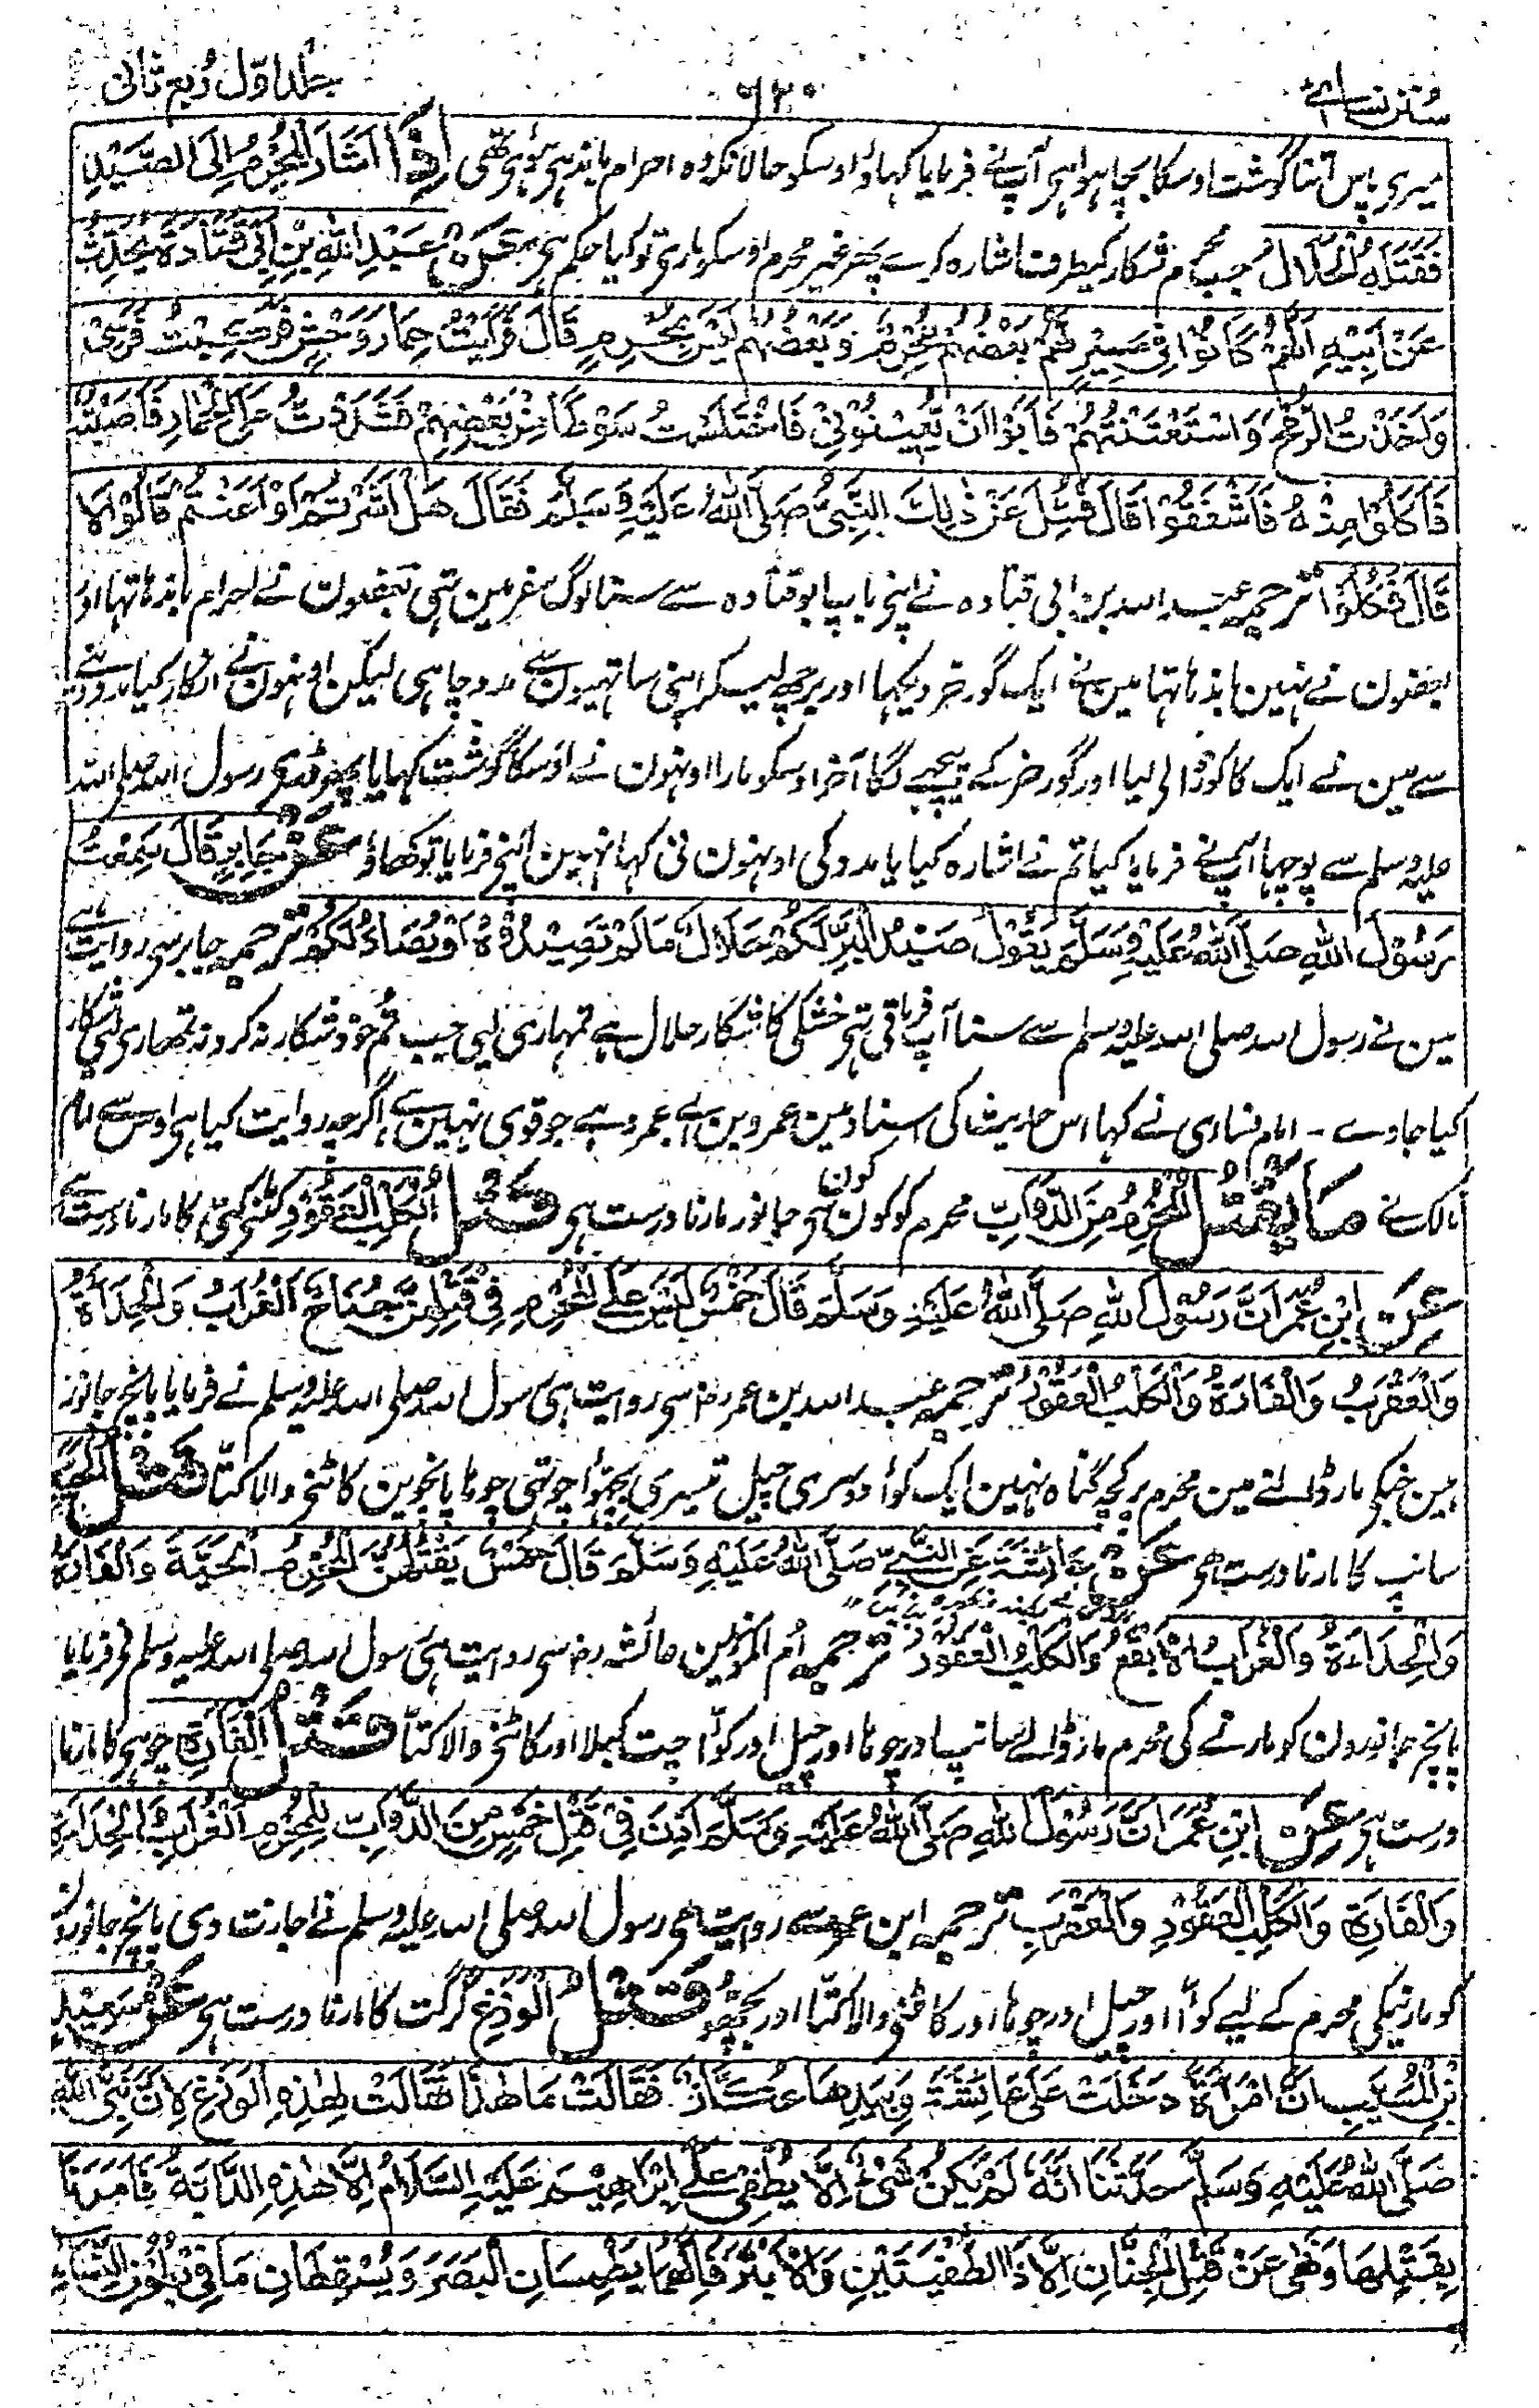 سنن نسائے
۶۲۰
جلد اوّل رُبع ثانی
میری پاس اتنا گوشت اوسکا بچا ہوا ہی آپ نے فرمایا کہاؤ اوسکو حالانکہ وہ احرام باندہی ہوئی تھی اِذَا اَشَارَ الْمُحْرِمُ اِلَی الصَّیْدِ
فَقَتَلَهُ الْحَلَالُ جب محرم شکار کیطرف اشارہ کرے پھر غیر محرم اوسکو ماری تو کیا حکم ہی عَنْ عَبْدِ اللهِ بْنِ اَبِیْ قَتَادَةَ یُحَدِّثُ
عَنْ اَبِیْهِ اَنَّهُمْ کَانُوْا فِیْ مَسِیْرٍ لَّهُمْ بَعْضُهُمْ مُحْرِمٌ وَبَعْضُهُمْ لَیْسَ بِمُحْرِمٍ قَالَ فَرَاَیْتُ حِمَارَ وَحْشٍ فَرَکِبْتُ فَرَسِیْ
وَاَخَذْتُ الرُّمْحَ وَاسْتَعَنْتُهُمْ فَاَبَوْا اَنْ یُّعِیْنُوْنِیْ فَاخْتَلَسْتُ سَوْطًا مِنْ بَعْضِهِمْ فَشَدَدْتُ عَلَی الْحِمَارِ فَاَصَبْتُهُ
فَاَکَلُوْا مِنْهُ فَاَشْفَقُوْا قَالَ فَسُئِلَ عَنْ ذٰلِكَ النَّبِیُّ صَلَّی اللهُ عَلَیْهِ وَسَلَّمَ فَقَالَ هَلْ اَشَرْتُمْ اَوْ اَعَنْتُمْ قَالُوْا لَا
قَالَ فَکُلُوْا ترجمہ عبد اللہ بن ابی قتادہ نے اپنی باپ ابو قتادہ سے سنا لوگ سفر مین تہی بعضون نے احرام باندہا تہا اور
بعضون نے نہین باندہا تہا مین نے ایک گورخر دیکہا اور برچھے لیکر اپنی ساتہیون سے مدد چاہی لیکن اونہون نے انکار کیا مدد دینے
سے مین نے ایک کا کوڑا لی لیا اور گورخر کے پیچہے لگا آخر اوسکو مارا اونہون نے اوسکا گوشت کہایا پھر ڈری رسول اللہ صلی اللہ
علیہ وسلم سے پوچہا آپ نے فرمایا کیا تم نے اشارہ کیا یا مدد کی اونہون نی کہا نہین آپنی فرمایا تو کھاؤ عَنْ جَابِرٍ قَالَ سَمِعْتُ
رَسُوْلَ اللهِ صَلَّی اللهُ عَلَیْهِ وَسَلَّمَ یَقُوْلُ صَیْدُ الْبَرِّ لَکُمْ حَلَالٌ مَا لَمْ تَصِیْدُوْهُ اَوْ یُصَادَ لَکُمْ ترجمہ جابر سی روایت ہے
مین نے رسول اللہ صلی اللہ علیہ وسلم سے سنا آپ فرماتی تہی خشکی کا شکار حلال ہے تمہاری لیی جب تم خود شکار نہ کرو نہ تمھاری لیی شکار
کیا جاوے - امام نسائی نے کہا اس حدیث کی اسناد مین عمرو بن ابے عمرو ہے جو قوی نہین ہے اگرچہ روایت کیا ہی اوس سے امام
مالک نے مَا یَقْتُلُ الْمُحْرِمُ مِنَ الدَّوَابِّ محرم کو کون کون سی جانور مارنا درست ہی قَتْلُ الْکَلْبِ الْعَقُوْرِ کٹنے کتّی کا مارنا درست ہے
عَنِ ابْنِ عُمَرَ اَنَّ رَسُوْلَ اللهِ صَلَّی اللهُ عَلَیْهِ وَسَلَّمَ قَالَ خَمْسٌ لَیْسَ عَلَی الْمُحْرِمِ فِیْ قَتْلِهِنَّ جُنَاحٌ اَلْغُرَابُ وَالْحِدَاَةُ
وَالْعَقْرَبُ وَالْفَارَةُ وَالْکَلْبُ الْعَقُوْرُ ترجمہ عبد اللہ بن عمر رض سی روایت ہی رسول اللہ صلی اللہ علیہ وسلم نے فرمایا پانچ جانور
ہین جنکی مار ڈالنے مین محرم پر کچہ گناہ نہین ایک کوّا دوسری چیل تیسری بچھّو چوتہی چوہا پانچوین کاٹنی والا کتّا قَتْلُ الْحَیَّةِ
سانپ کا مارنا درست ہی عَنْ عَائِشَةَ عَنِ النَّبِیِّ صَلَّی اللهُ عَلَیْهِ وَسَلَّمَ قَالَ خَمْسٌ یَقْتُلُهُنَّ الْمُحْرِمُ الْحَیَّةُ وَالْفَارَةُ
وَالْحِدَاَةُ وَالْغُرَابُ الْاَبْقَعُ وَالْکَلْبُ الْعَقُوْرُ ترجمہ ام المومنین عائشہ رض سی روایت ہی رسول اللہ صلی اللہ علیہ وسلم نی فرمایا
پانچ جانورون کو مارنے کی محرم مار ڈالے سانپ اور چوہا اور چیل اور کوّا چت کبہلا اور کاٹنی والا کتّا قَتْلُ الْفَارَةِ چوہی کا مارنا
درست ہی عَنِ ابْنِ عُمَرَ اَنَّ رَسُوْلَ اللهِ صَلَّی اللهُ عَلَیْهِ وَسَلَّمَ اَذِنَ فِیْ قَتْلِ خَمْسٍ مِنَ الدَّوَابِّ لِلْمُحْرِمِ الْغُرَابِ وَالْحِدَاَةِ
وَالْفَارَةِ وَالْکَلْبِ الْعَقُوْرِ وَالْعَقْرَبِ ترجمہ ابن عمر سے روایت ہی رسول اللہ صلی اللہ علیہ وسلم نے اجازت دی پانچ جانورون
کو مارنیکی محرم کے لیے کوّا اور چیل اور چوہا اور کاٹنی والا کتّا اور بچھّو قَتْلُ الْوَزَغِ گرگٹ کا مارنا درست ہی عَنْ سَعِیْدِ
بْنِ الْمُسَیَّبِ اَنَّ امْرَاَةً دَخَلَتْ عَلٰی عَائِشَةَ وَبِیَدِهَا عُکَّازٌ فَقَالَتْ مَا هٰذَا فَقَالَتْ لِهٰذِهِ الْوَزَغِ لِاَنَّ نَبِیَّ اللهِ
صَلَّی اللهُ عَلَیْهِ وَسَلَّمَ حَدَّثَنَا اَنَّهُ لَمْ یَکُنْ شَیْءٌ اِلَّا یُطْفِیُٔ عَلٰی اِبْرَاهِیْمَ عَلَیْهِ السَّلَامُ اِلَّا هٰذِهِ الدَّابَّةُ فَاَمَرَنَا
بِقَتْلِهَا وَنَهٰی عَنْ قَتْلِ الْجِنَّانِ اِلَّا ذَا الطُّفْیَتَیْنِ وَالْاَبْتَرَ فَاِنَّهُمَا یَطْمِسَانِ الْبَصَرَ وَیُسْقِطَانِ مَا فِیْ بُطُوْنِ النِّسَاءِ